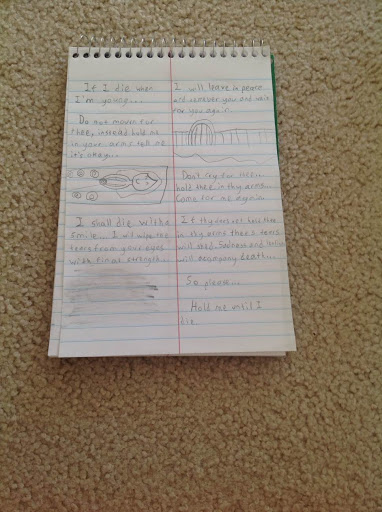 If I die when
I'm young...
Do not mourn for
thee, instead hold me
in your arms tell me
it's okay...
I shall die with a
smile... I will wipe the
tears from your eyes
with final strength...
I will leave in peace
and remember you and wait
for you again.
Don't cry for thee...
hold thee in thy arms...
Come for me again.
If thy does not have thee
in thy arms thee's tears
will shed. Sadness and
will accompany death...
So please...
Hold me until I
die